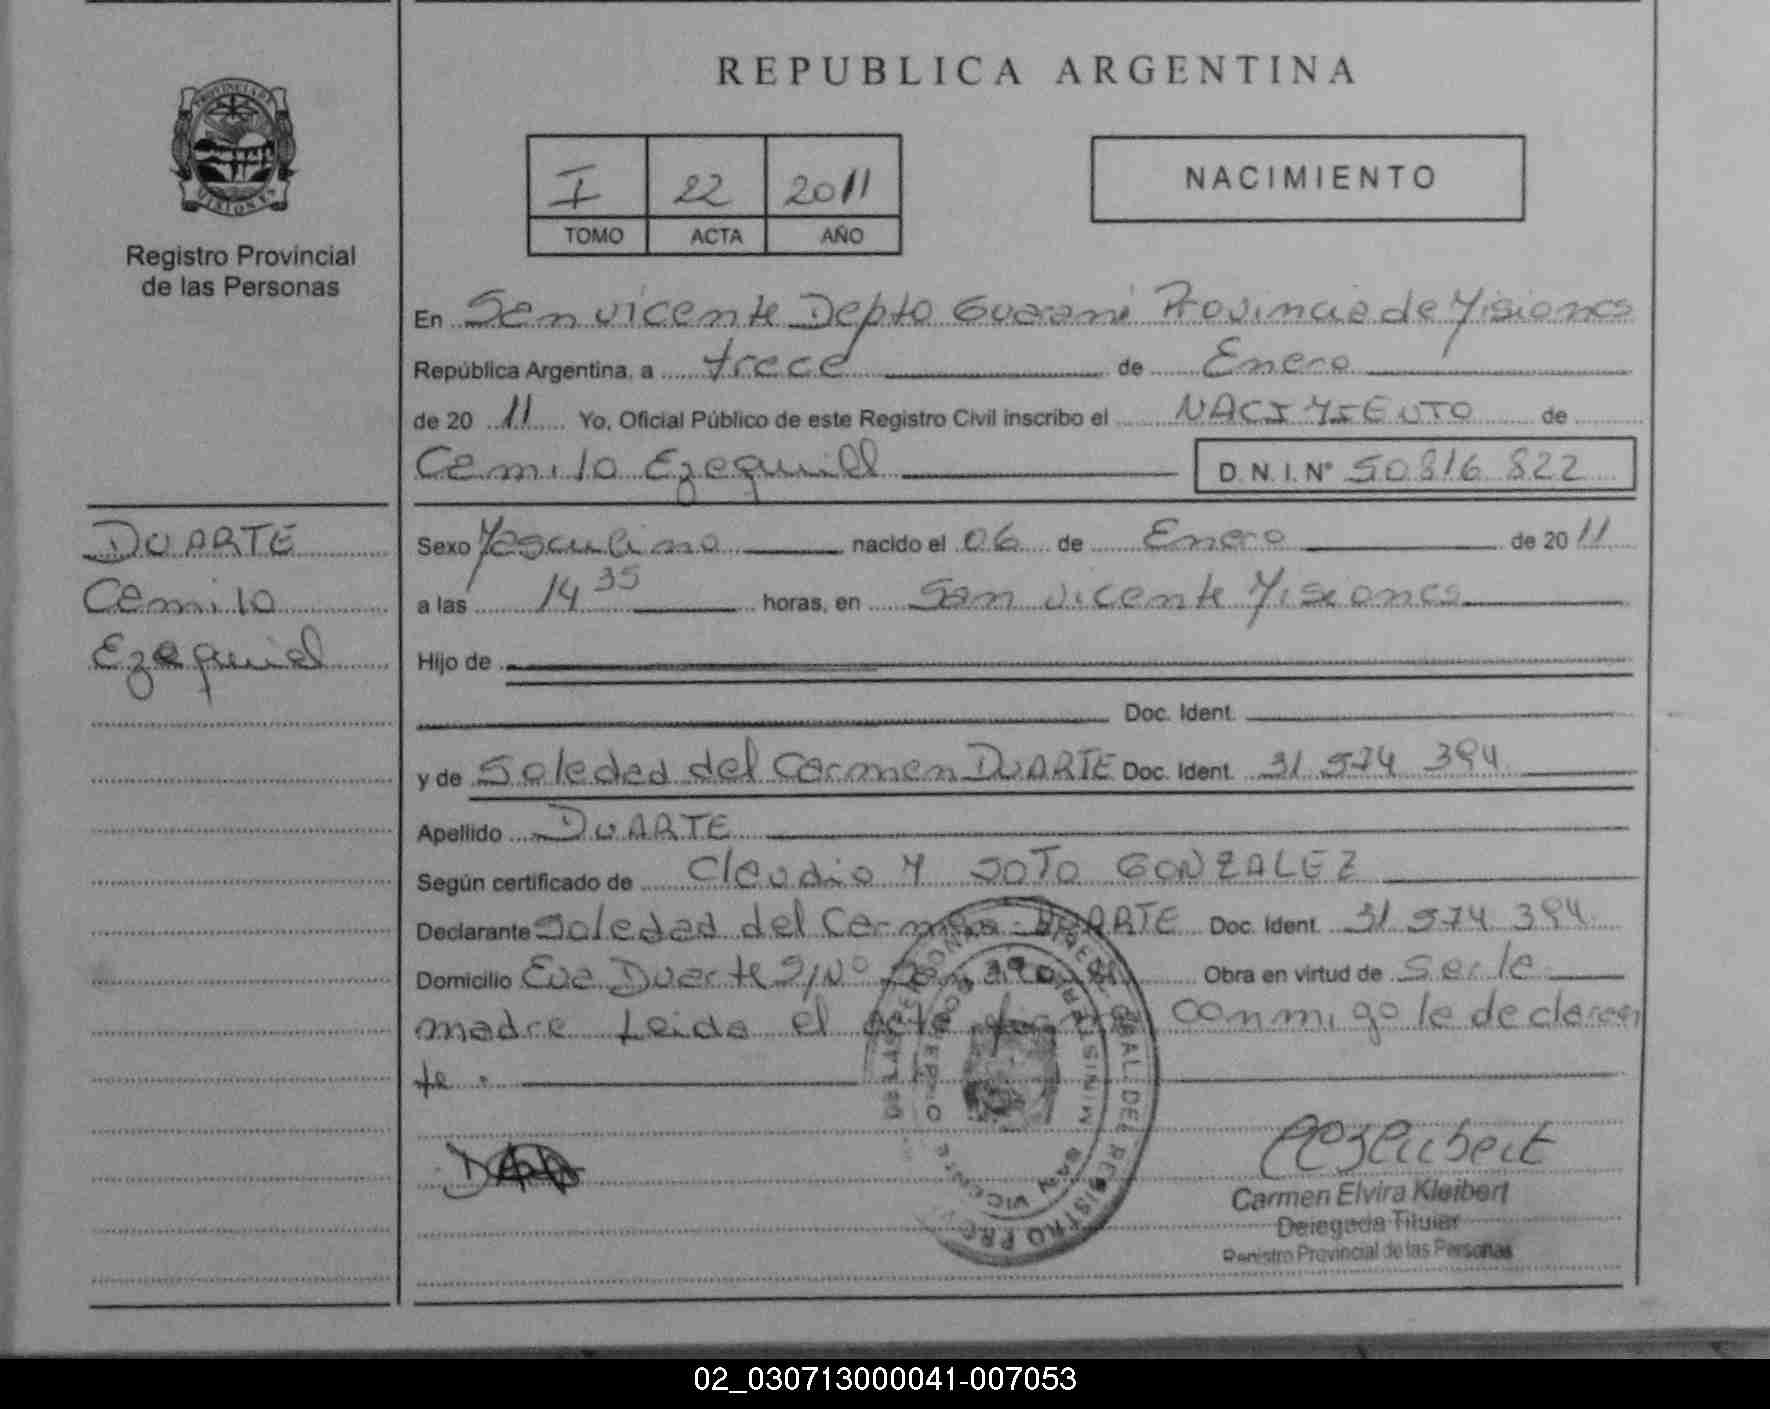 REPUBLICA ARGENTINA
I 22 2011
TOMO ACTA AÑO
NACIMIENTO
Registro Provincial
de las Personas
En San vicente Depto Guarani Provincia de Misiones
República Argentina, a trece de Enero
de 20 11 Yo, Oficial Público de este Registro Civil inscribo el NACIMIENTO de
Camilo Ezequiel D.N.I.Nº 50816822
DUARTE
Camilo
Ezequiel
Sexo Masculino nacido el 06 de Enero de 2011
a las 14 35 horas, en San vicente Misiones
Hijo de
Doc. Ident.
y de Soledad del Carmen DUARTE Doc. Ident. 31 574 394
Apellido DUARTE
Según certificado de Claudio M SOTO GONZALEZ
Declarante Soledad del Carmen DUARTE Doc. Ident. 31 574 394
Domicilio Eva Duarte S/Nº Obra en virtud de ser la
madre Leida el acta conmigo la declaran
te.
Carmen Elvira Kleibert
Delegada Titular
Registro Provincial de las Personas
02_030713000041-007053